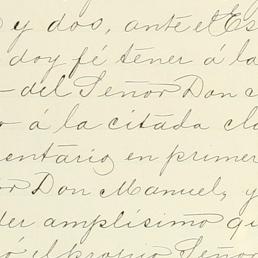 y dos, ante el Es
doy fé tener á la
del Señor Don
á la citada cla
entario en primer
or Don Manuel, y
der amplísimo qu
ó el propio Señor